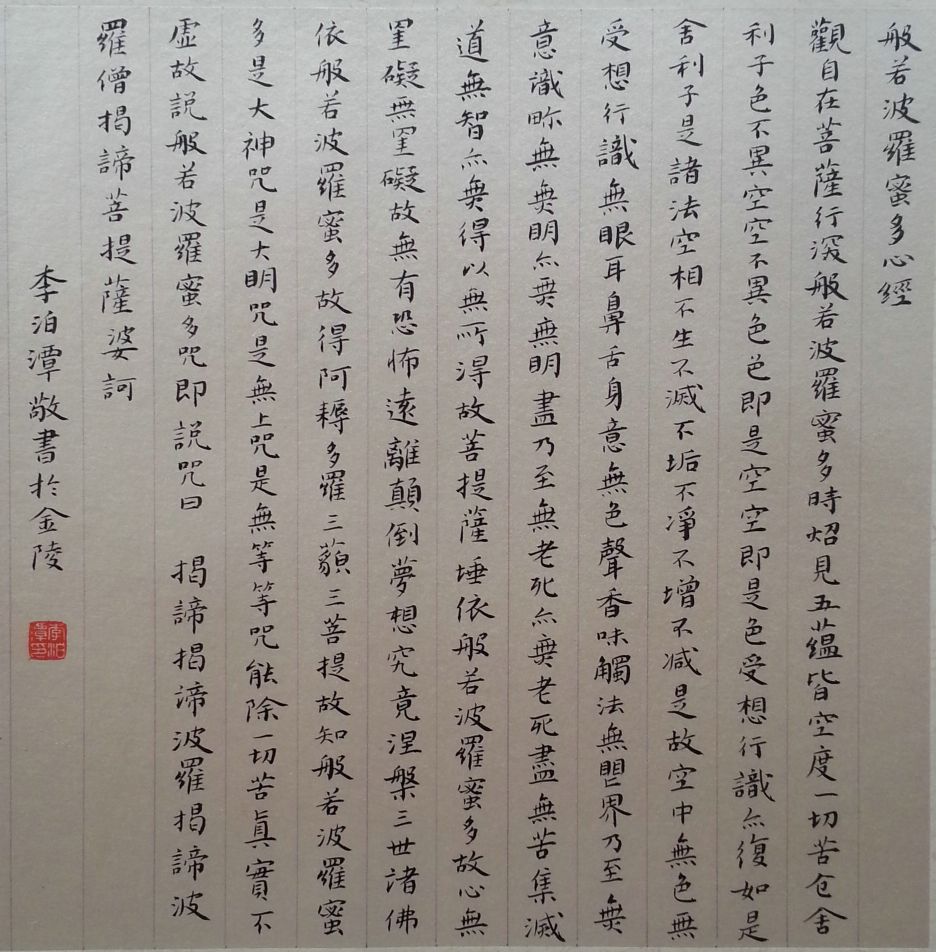 般若波羅蜜多心經
觀自在菩薩行深般若波羅蜜多時炤見五蘊皆空度一切苦仓舍
利子色不異空空不異色色即是空空即是色受想行識亦復如是
舍利子是諸法空相不生不滅不垢不淨不增不減是故空中無色無
受想行識無眼耳鼻舌身意無色聲香味觸法無眼界乃至無
意識界無無明亦無無明盡乃至無老死亦無老死盡無苦集滅
道無智亦無得以無所得故菩提薩埵依般若波羅蜜多故心無
罣礙無罣礙故無有恐怖遠離顛倒夢想究竟涅槃三世諸佛
依般若波羅蜜多故得阿耨多羅三藐三菩提故知般若波羅蜜
多是大神咒是大明咒是無上咒是無等等咒能除一切苦真實不
虛故説般若波羅蜜多咒即説咒曰 揭諦揭諦波羅揭諦波
羅僧揭諦菩提薩婆訶
李泊潭敬書於金陵
李泊潭印